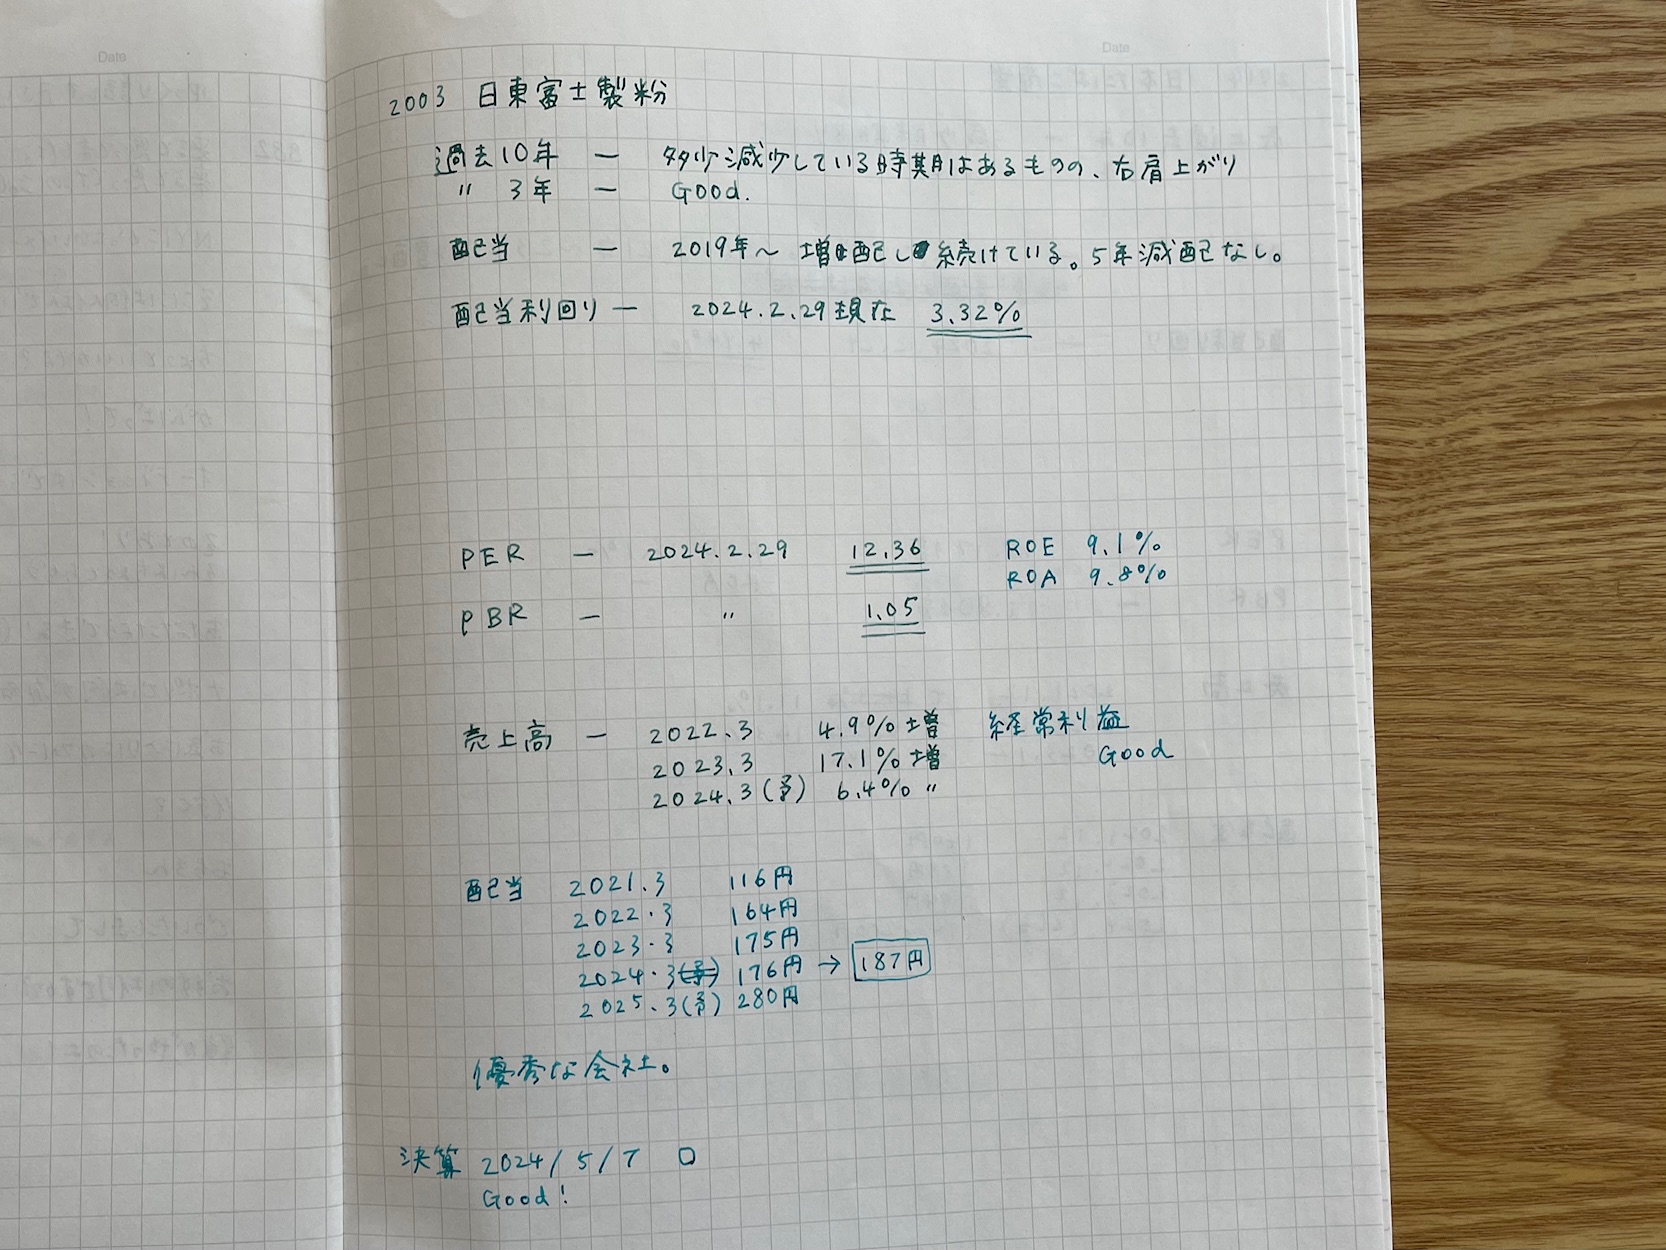 Date
Date
2003 日東富士製粉
過去10年 ー 多少減少している時期はあるものの、右肩上がり
〃 3年 ー Good.
配当 ー 2019年～ 増配し続けている。5年減配なし。
配当利回り ー 2024.2.29現在 3.32%
PER ー 2024.2.29 12.36 ROE 9.1%
ROA 9.8%
PBR ー 〃 1.05
売上高 ー 2022.3 4.9%増 経常利益
2023.3 17.1%増 Good
2024.3(予) 6.4% 〃
配当 2021.3 116円
2022.3 164円
2023.3 175円
2024.3(予) 176円 → 187円
2025.3(予) 280円
優秀な会社。
決算 2024/5/7 □
Good!